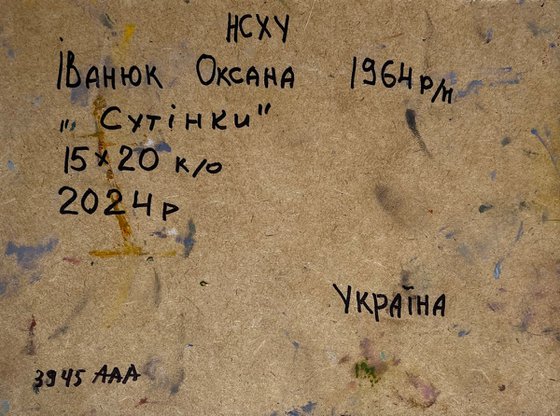 НСХУ
Іванюк Оксана 1964 р/н
„Сутінки"
15×20 к/о
2024р
УКРАЇНА
3945 ААА